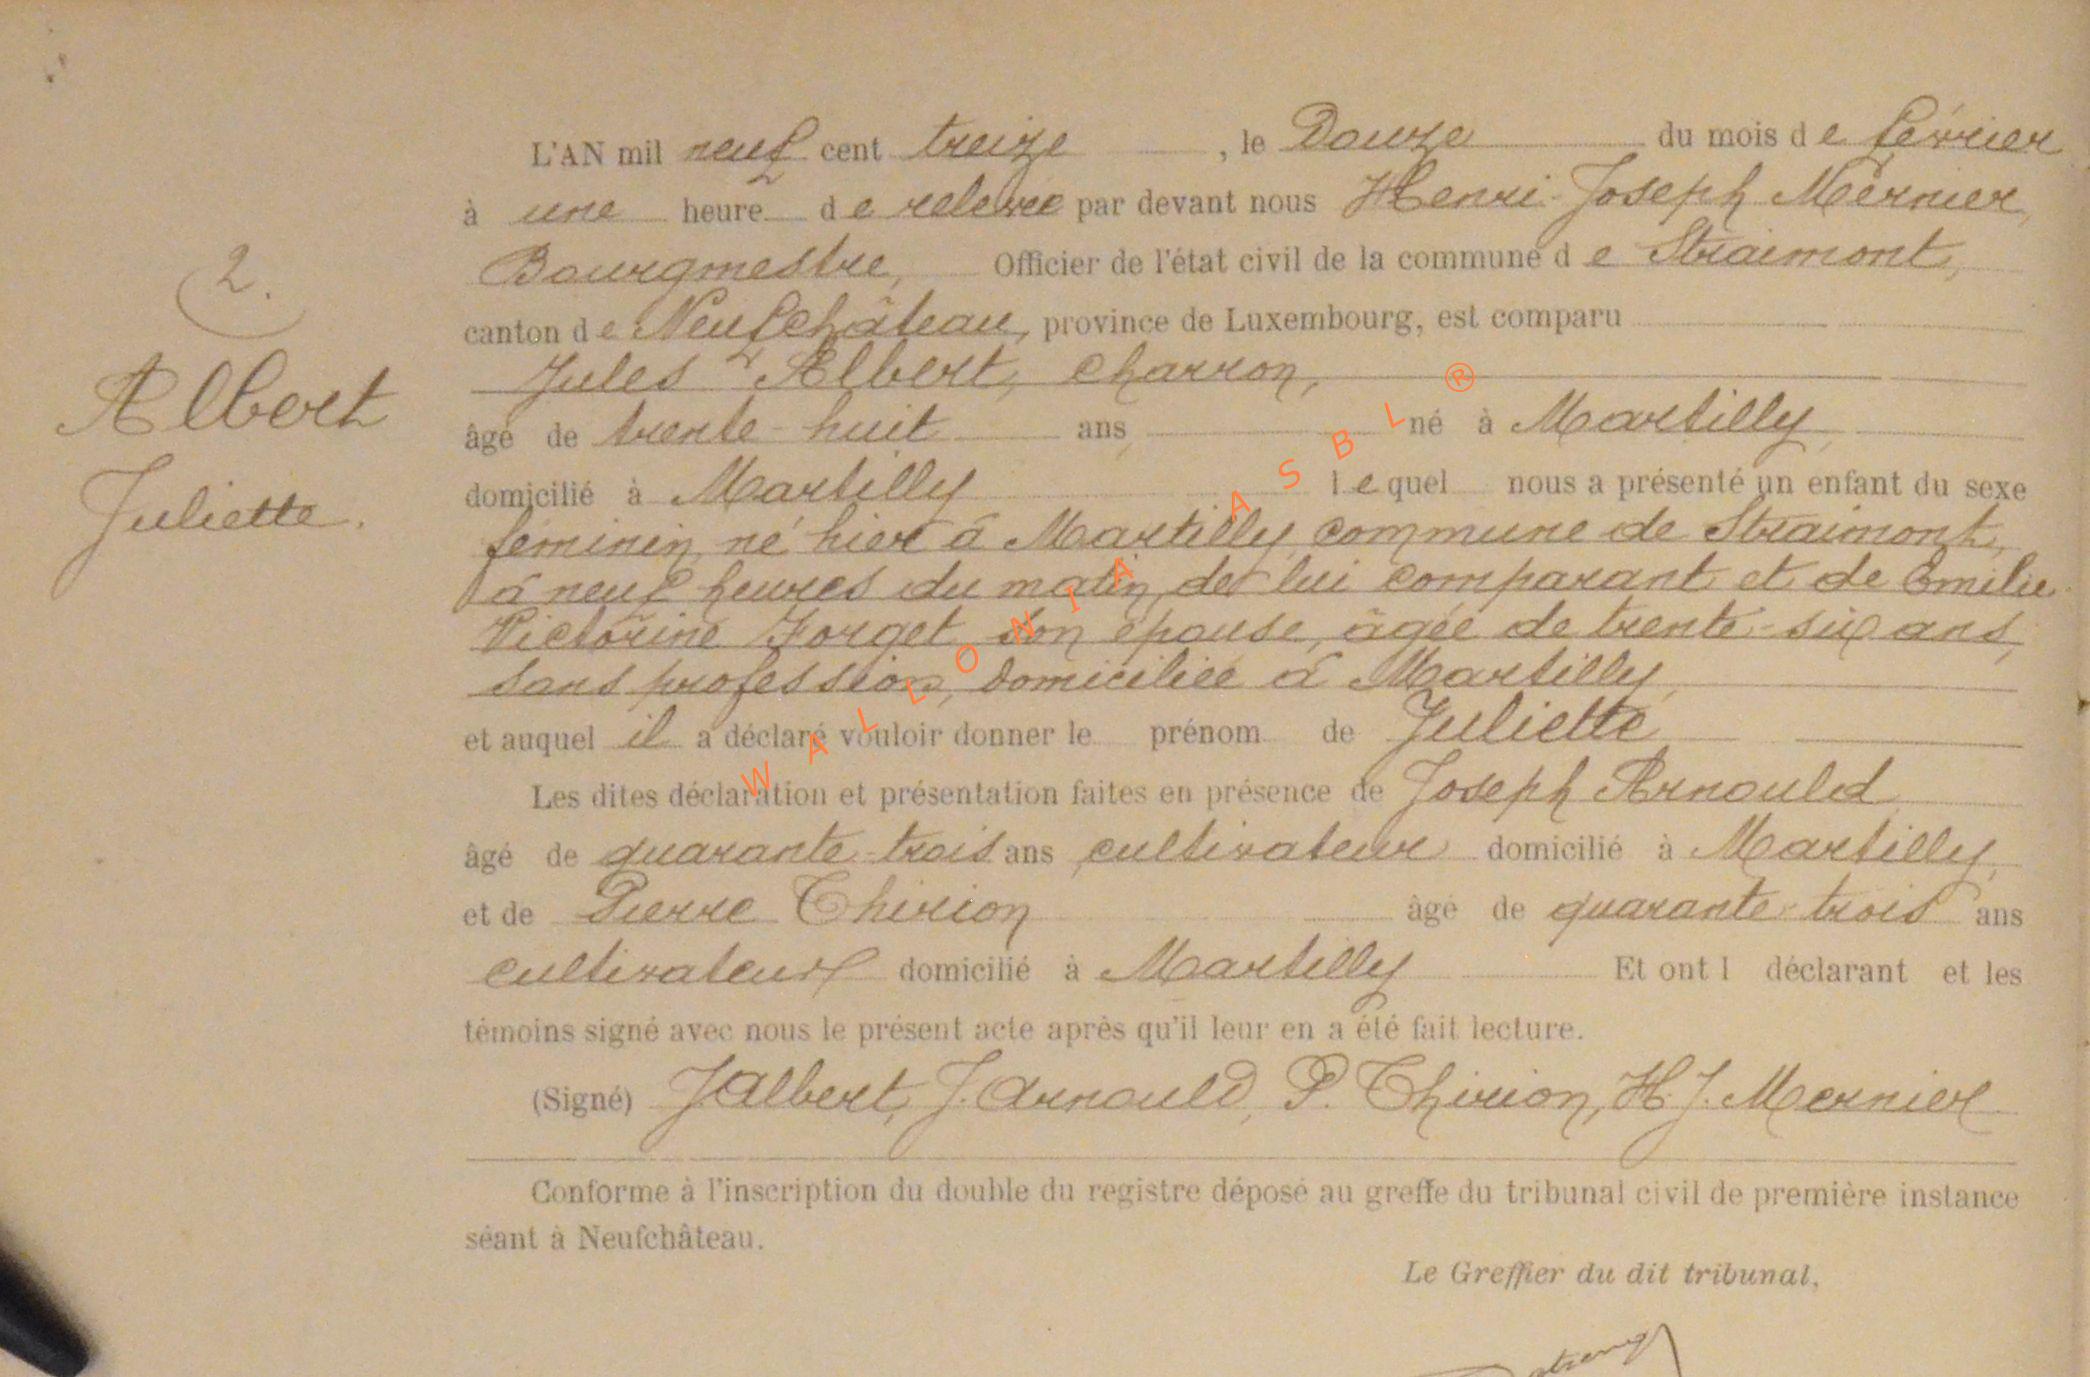 2.
Albert
Juliette.
L'AN mil neuf cent treize, le Douze du mois de février
à une heure de relevée par devant nous Henri-Joseph Mernier,
Bourgmestre, Officier de l'état civil de la commune de Straimont,
canton de Neufchâteau, province de Luxembourg, est comparu
Jules Albert, charron,
âgé de trente-huit ans, né à Martilly,
domicilié à Martilly lequel nous a présenté un enfant du sexe
féminin, né hier à Martilly, commune de Straimont,
à neuf heures du matin, de lui comparant et de Emilie
Victorine Forget, son épouse, âgée de trente-six ans,
sans profession, domiciliée à Martilly,
et auquel il a déclaré vouloir donner le prénom de Juliette
Les dites déclaration et présentation faites en présence de Joseph Arnould
âgé de quarante-trois ans, cultivateur domicilié à Martilly,
et de Pierre Thirion âgé de quarante-trois ans
cultivateur domicilié à Martilly Et ont l déclarant et les
témoins signé avec nous le présent acte après qu'il leur en a été fait lecture.
(Signé) J Albert, J. Arnould, P. Thirion, H. J. Mernier
Conforme à l'inscription du double du registre déposé au greffe du tribunal civil de première instance
séant à Neufchâteau.
Le Greffier du dit tribunal,
WALLONIA ASBL ®